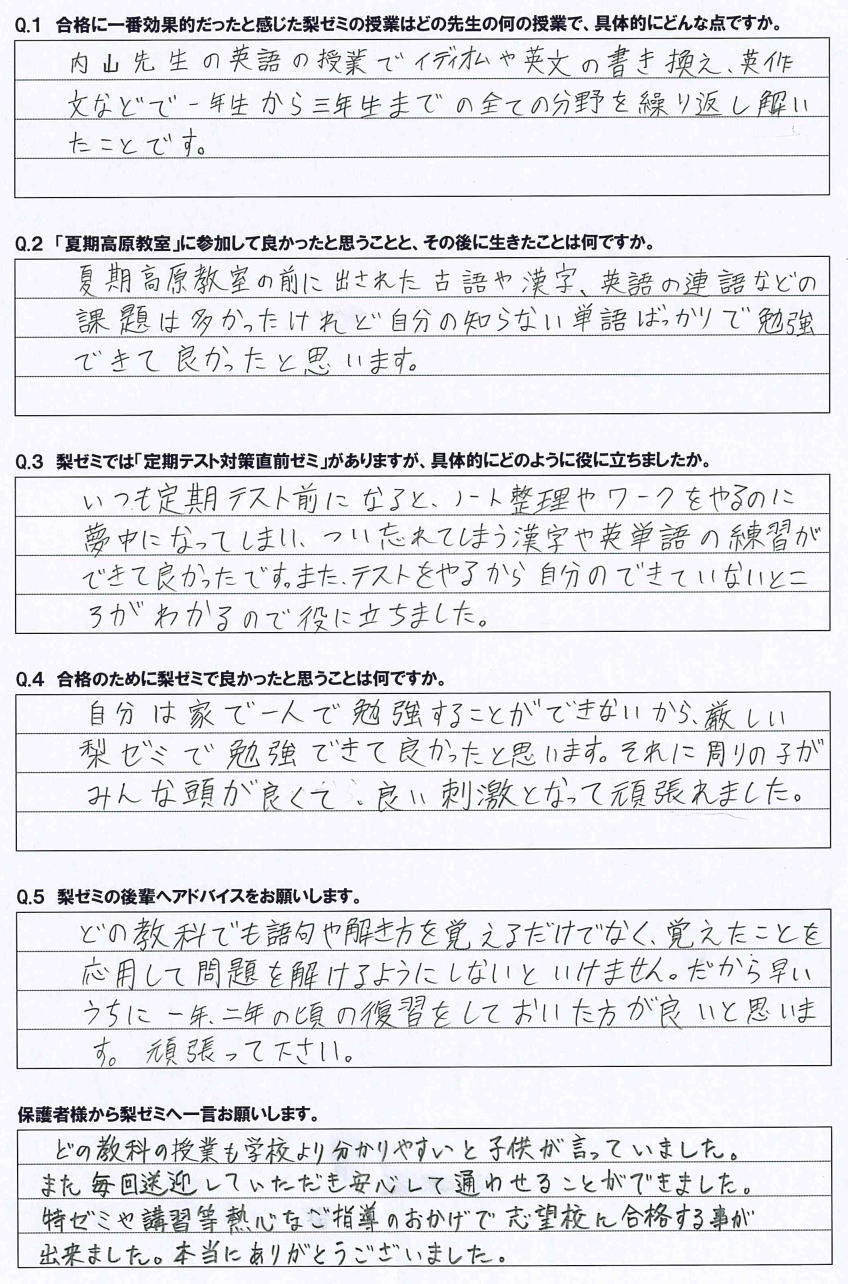 Q.1 合格に一番効果的だったと感じた梨ゼミの授業はどの先生の何の授業で、具体的にどんな点ですか。
内山先生の英語の授業でイディオムや英文の書き換え、英作
文などで一年生から三年生までの全ての分野を繰り返し解い
たことです。
Q.2 「夏期高原教室」に参加して良かったと思うことと、その後に生きたことは何ですか。
夏期高原教室の前に出された古語や漢字、英語の連語などの
課題は多かったけれど自分の知らない単語ばっかりで勉強
できて良かったと思います。
Q.3 梨ゼミでは「定期テスト対策直前ゼミ」がありますが、具体的にどのように役に立ちましたか。
いつも定期テスト前になると、ノート整理やワークをやるのに
夢中になってしまい、つい忘れてしまう漢字や英単語の練習が
できて良かったです。また、テストをやるから自分のできていないとこ
ろがわかるので役に立ちました。
Q.4 合格のために梨ゼミで良かったと思うことは何ですか。
自分は家で一人で勉強することができないから、厳しい
梨ゼミで勉強できて良かったと思います。それに周りの子が
みんな頭が良くて、良い刺激となって頑張れました。
Q.5 梨ゼミの後輩へアドバイスをお願いします。
どの教科でも語句や解き方を覚えるだけでなく、覚えたことを
応用して問題を解けるようにしないといけません。だから早い
うちに一年、二年の頃の復習をしておいた方が良いと思いま
す。頑張って下さい。
保護者様から梨ゼミへ一言お願いします。
どの教科の授業も学校より分かりやすいと子供が言っていました。
また毎回送迎していただき安心して通わせることができました。
特ゼミや講習等熱心なご指導のおかげで志望校に合格する事が
出来ました。本当にありがとうございました。